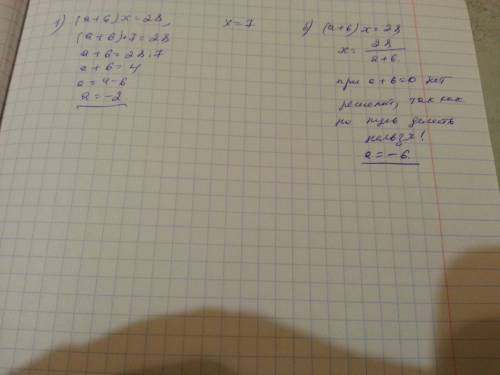 1) (a+6)x=28, x=7
(a+6)·7=28
a+6=28:7
a+6=4
a=4-6
a=-2
2) (a+6)x=28
x=28/a+6.
при a+6=0 нет
решений, так как
на нуль делить
нельзя!
a=-6.